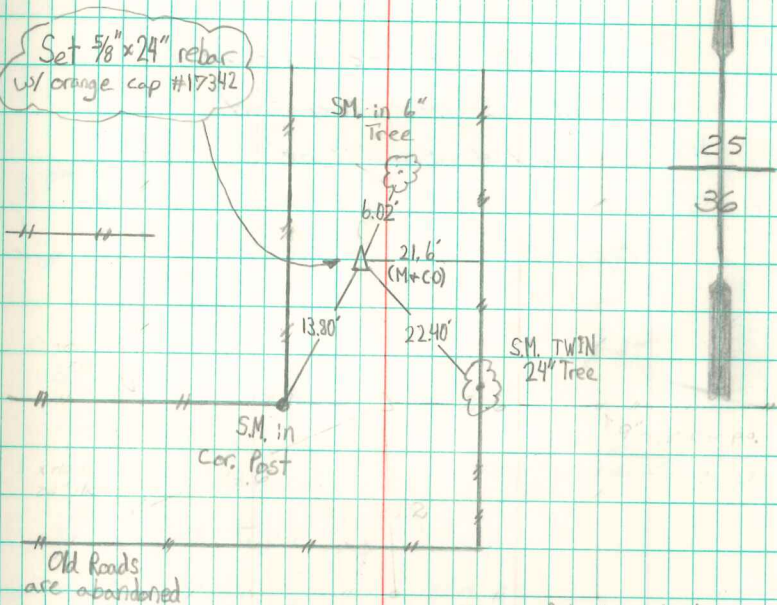 Set 5/8" x 24" rebar
w/ orange cap #17342
S.M. in 6"
Tree
25
36
6.02'
21.6'
(M+CO)
13.80'
22.40'
S.M. TWIN
24" Tree
S.M. in
Cor. Post
Old Roads
are abandoned